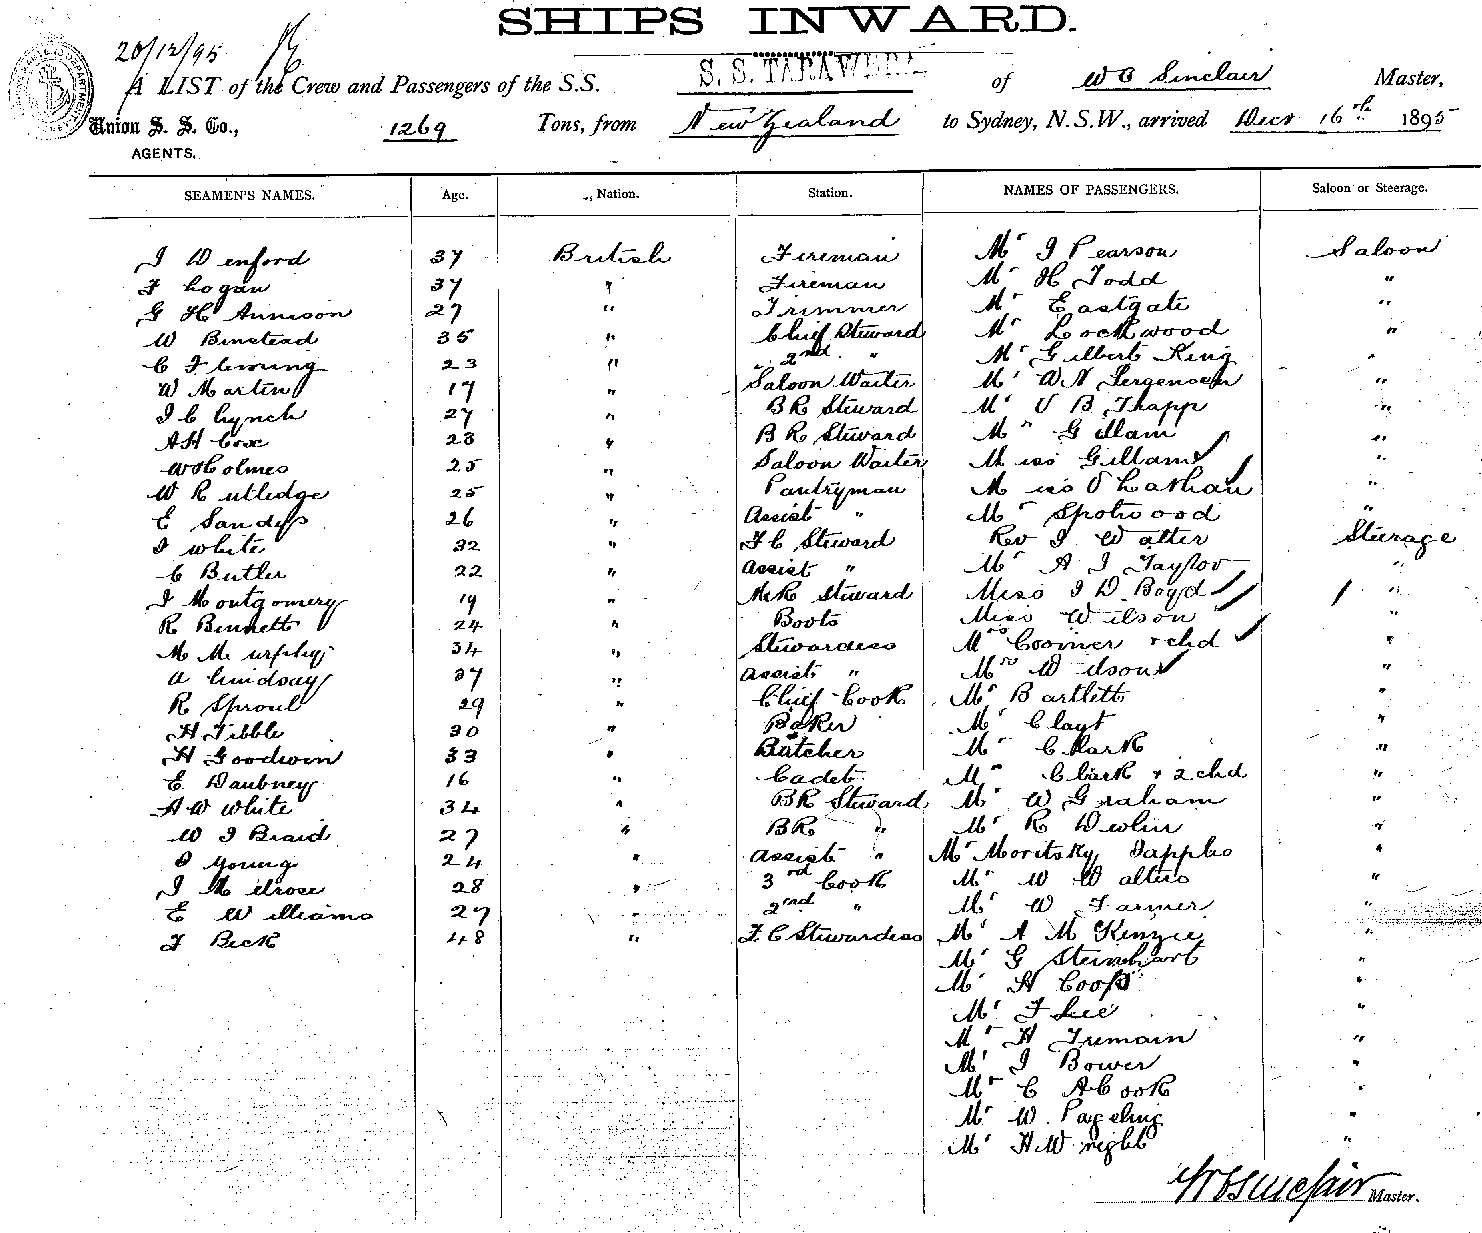 SHIPS INWARD.
20/12/95
S. S. TARAWERA
A LIST of the Crew and Passengers of the S.S. of W C Sinclair Master,
Union S. S. Co., 1269 Tons, from New Zealand to Sydney, N.S.W., arrived Decr 16th 1895
AGENTS.
SEAMEN'S NAMES. Age. Nation. Station. NAMES OF PASSENGERS. Saloon or Steerage.
J Wenford 37 British Fireman Mr J Pearson Saloon
F Logan 37 " Fireman Mr H Todd "
G H Annison 27 " Trimmer Mr Eastgate "
W Binstead 35 " Chief Steward Mr Lockwood "
C Fleming 23 " 2nd " Mr Gilbert King "
W Martin 17 " Saloon Waiter Mr W N Jergensen "
J C Lynch 27 " B R Steward Mr V B Trapp "
A H Cox 23 " B R Steward Mr Gillam "
W Holmes 25 " Saloon Waiter Miss Gillam "
W Rutledge 25 " Pantryman Miss "
E Sandys 26 " Assist " Mr Spotwood "
J White 32 " F C Steward Rev J Walter Steerage
C Butler 22 " Assist " Mr A J Taylor "
J Montgomery 19 " M R Steward Miss J D Boyd "
R Bennett 24 " Boots Miss Wilson "
M Murphy 34 " Stewardess Mrs Coomer + chd "
A Lindsay 37 " Assist " Mrs Wilson "
R Sproul 29 " Chief Cook Mr Bartlett "
H Tibble 30 " Baker Mr Clayt "
H Goodwin 33 " Butcher Mr Clark "
E Daubney 16 " Cadet Mr Clark + 2 chd "
A W White 34 " B R Steward Mr W Graham "
W J Braid 27 " B R " Mr R Devlin "
J Young 24 " Assist " Mr Moritsky "
J Melrose 28 " 3rd Cook Mr W Walters "
E Williams 27 " 2nd " Mr W Farmer "
F Beck 48 " F. C Stewardess Mr A McKenzie "
Mr G Steinhart "
Mr H Coops "
Mr F Lee "
Mr H Tremain "
Mr J Bower "
Mr C A Cook "
Mr W. Pageling "
Mr H Wright "
W C Sinclair Master.